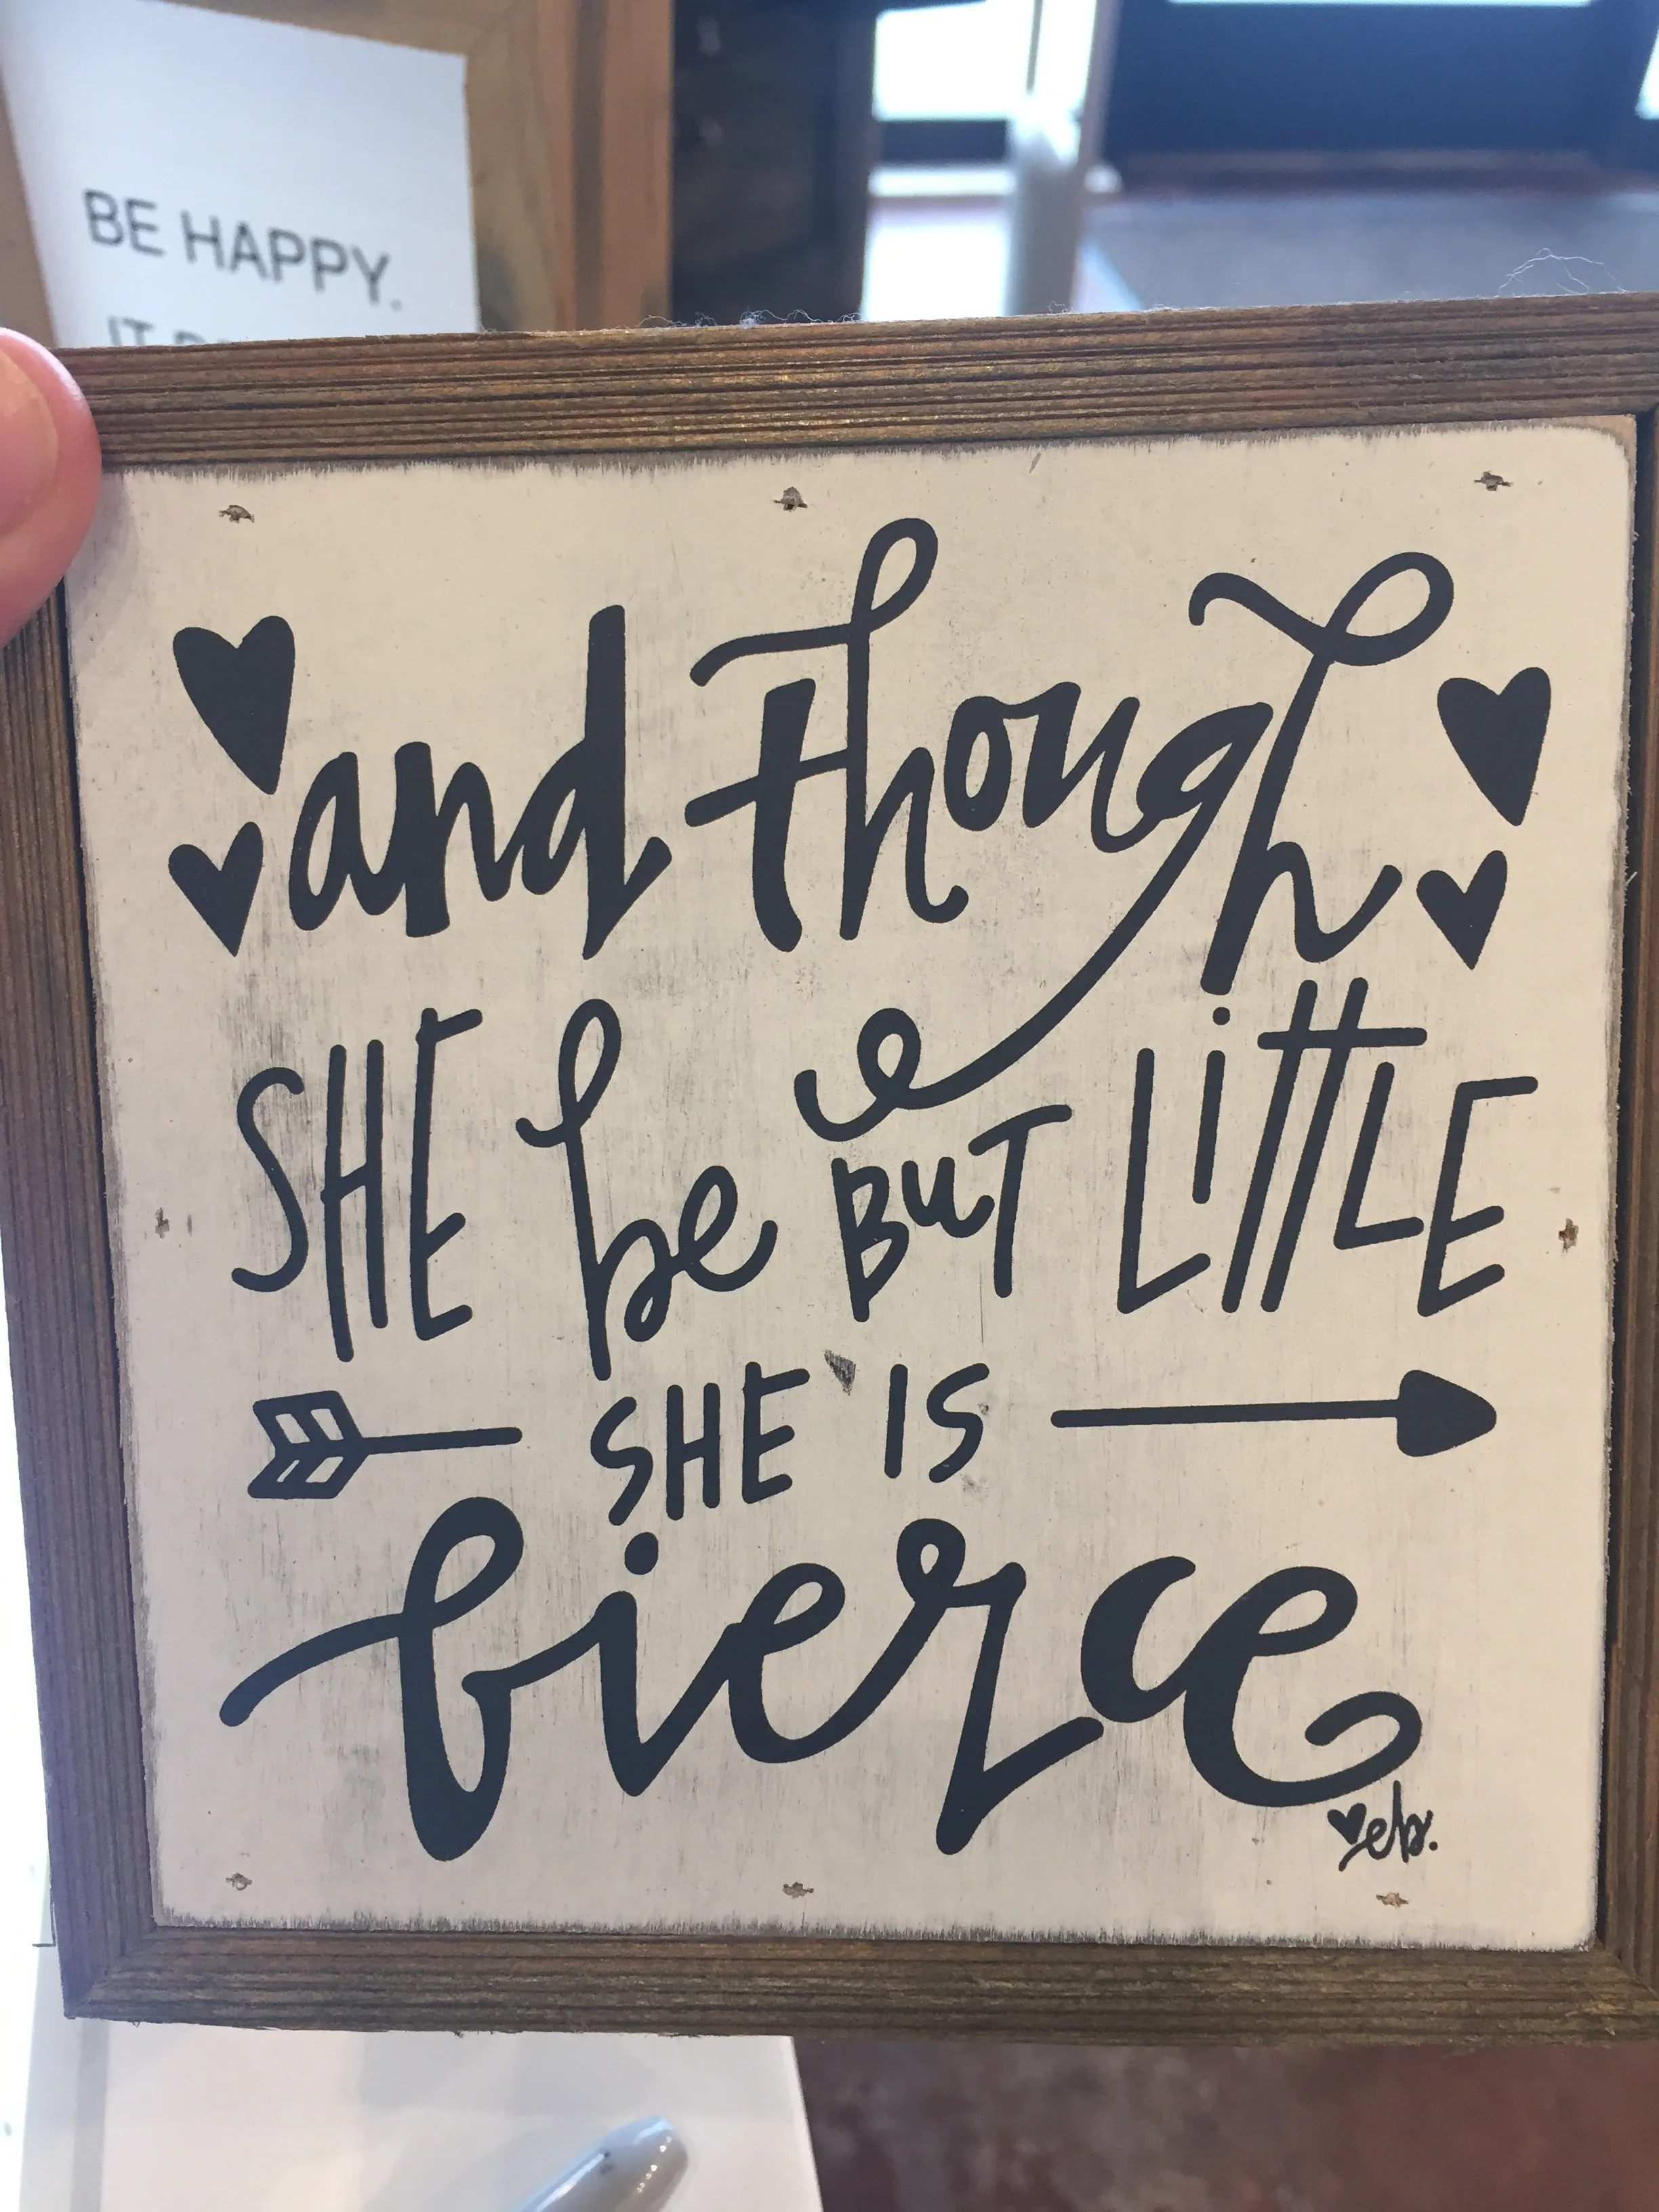 BE HAPPY.
and though
SHE be BUT LittLE
SHE IS
fierce
eb.